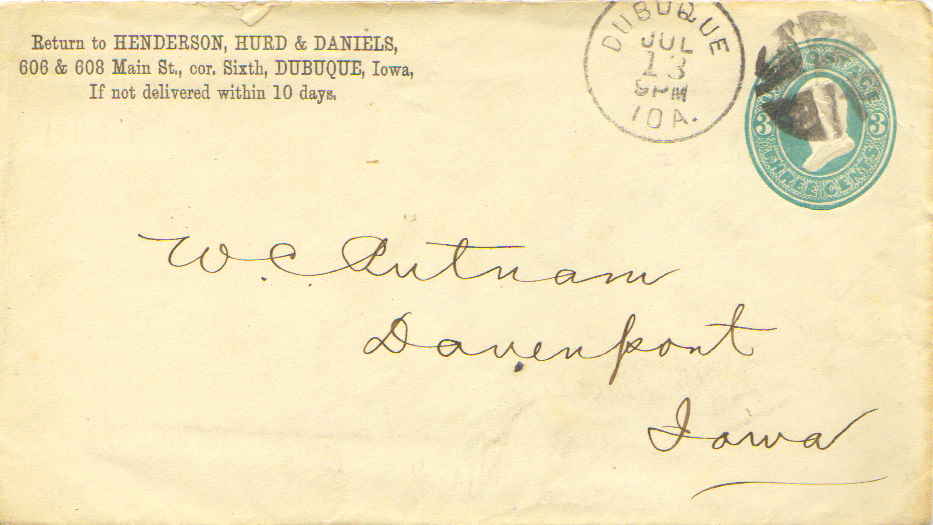 Return to HENDERSON, HURD & DANIELS,
606 & 608 Main St., cor. Sixth, DUBUQUE, Iowa,
If not delivered within 10 days.
DUBUQUE
JUL
13
9PM
IOA.
POSTAGE
3 3
THREE CENTS
W. C. Putnam
Davenport
Iowa